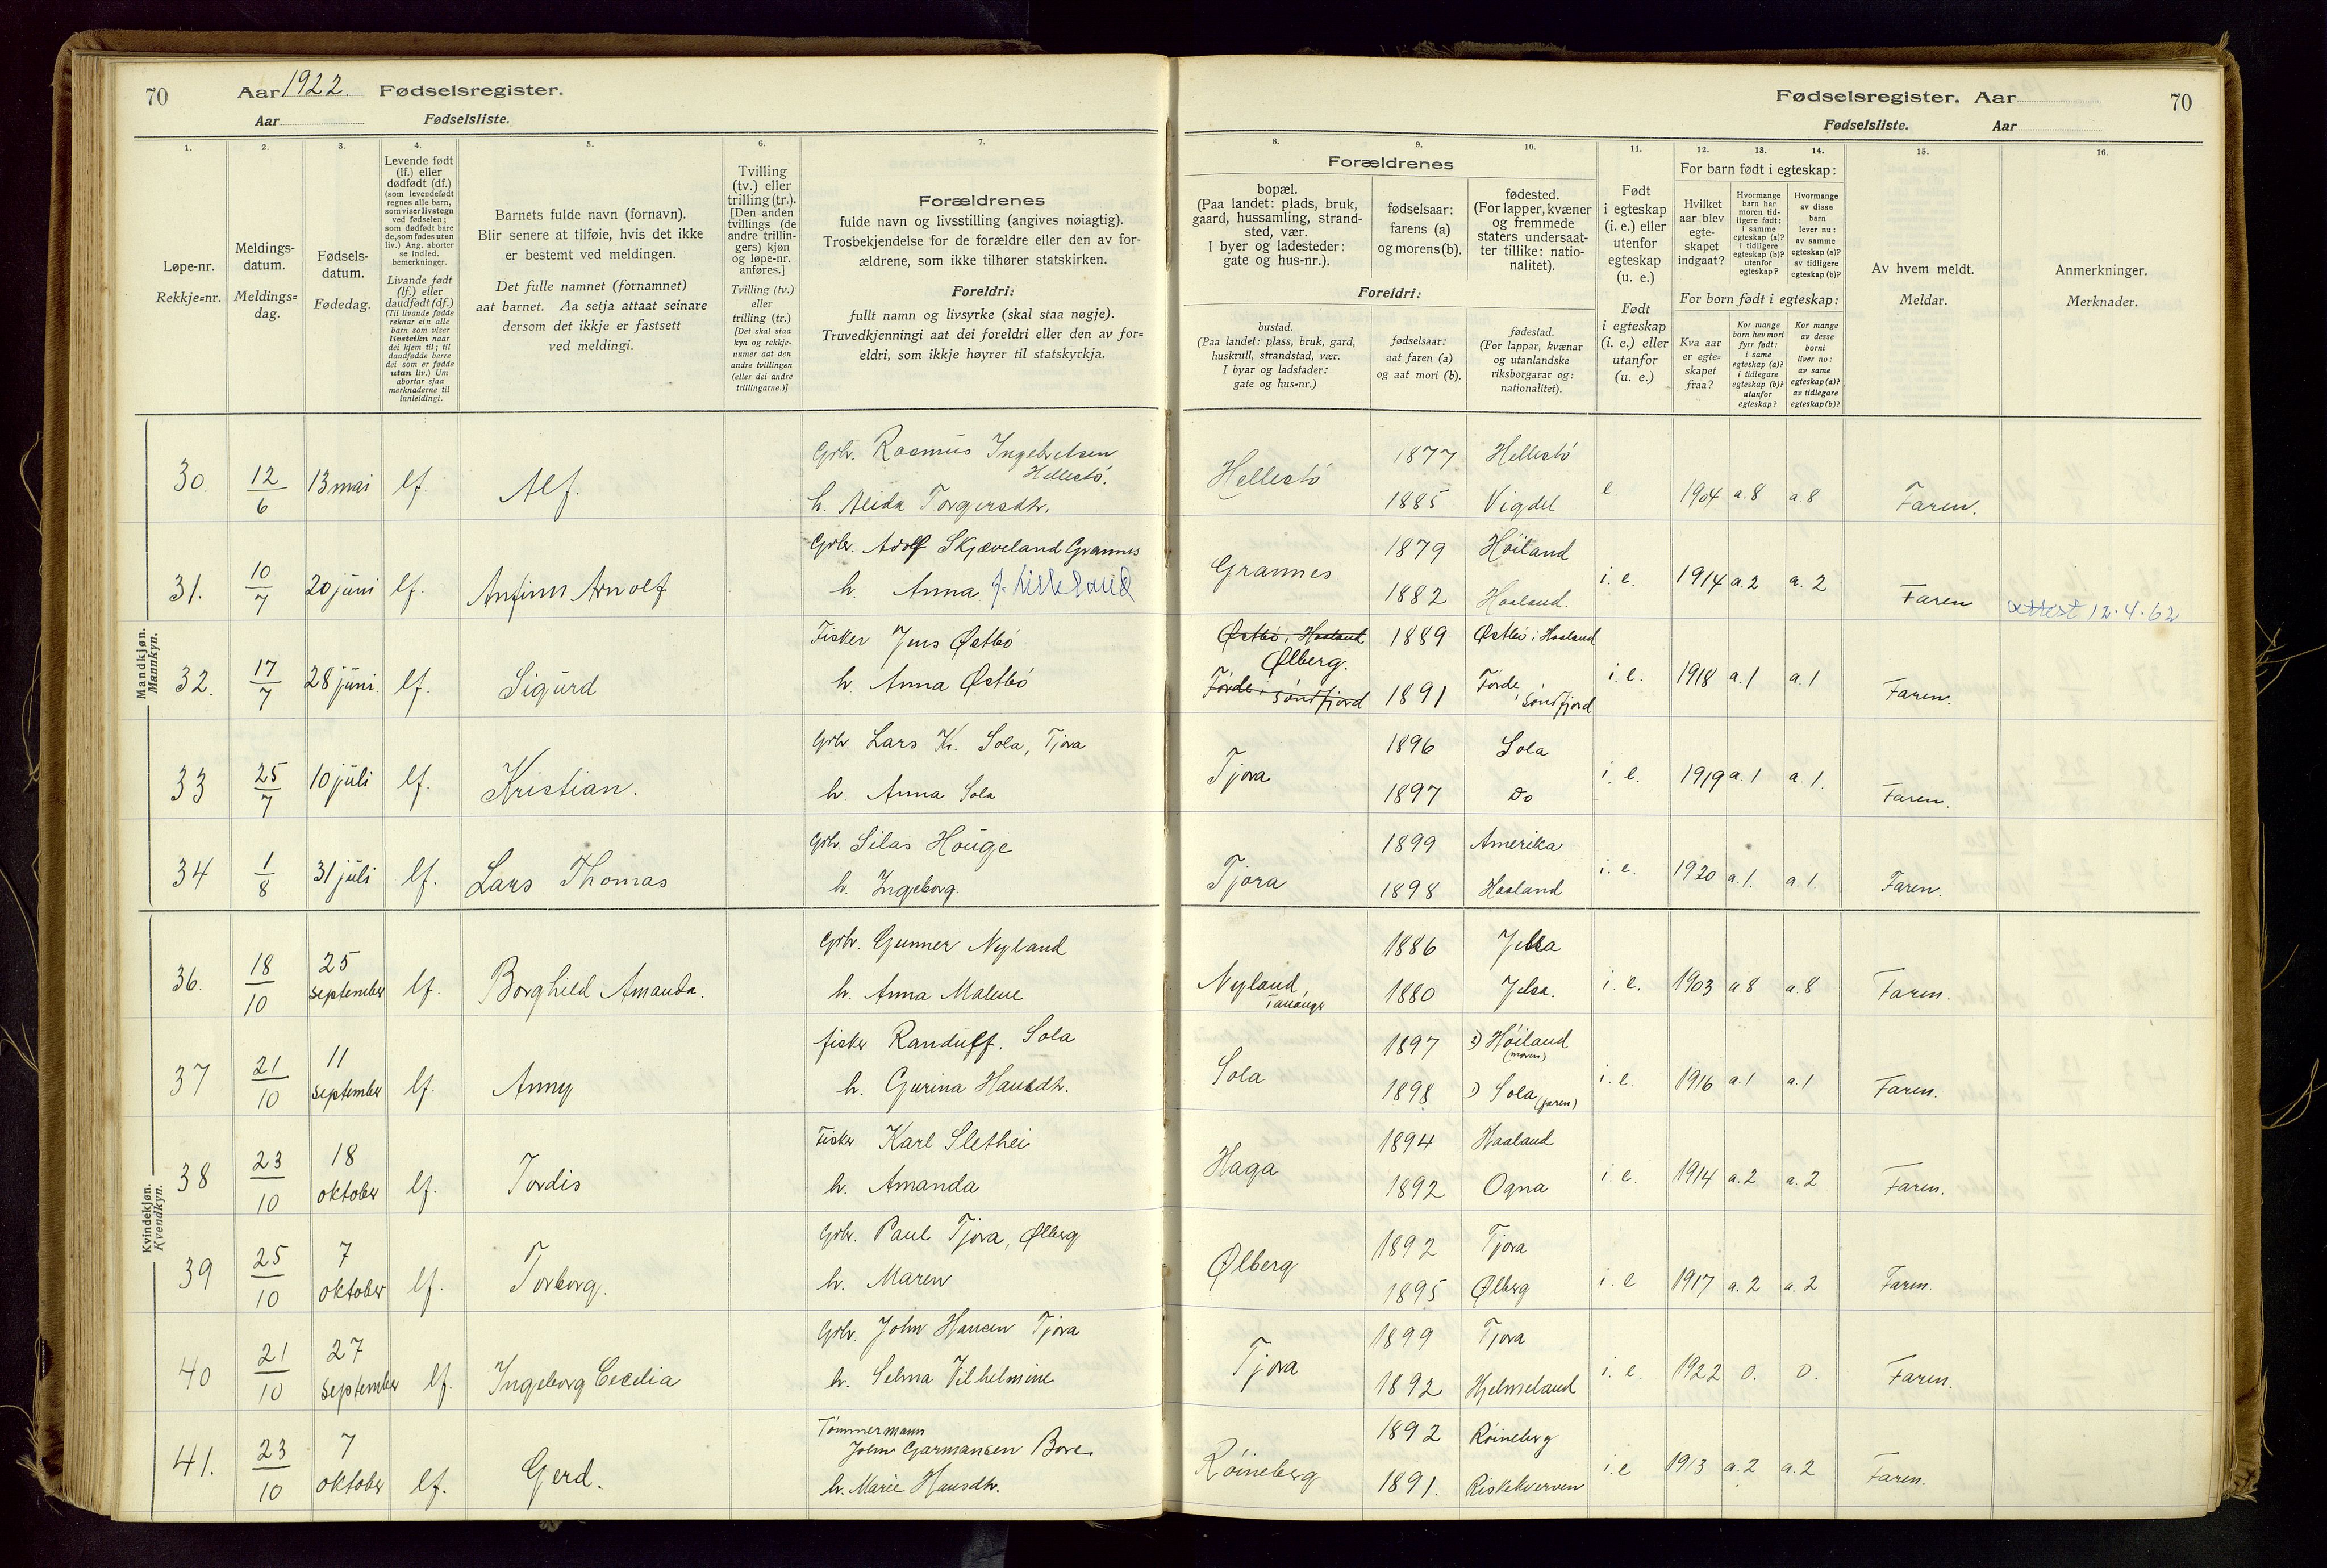 70 Aar 1922. Fødselsregister.
Aar Fødselsliste.
Fødselsregister. Aar 70
Fødselsliste. Aar
1. 2. 3. 4. 5. 6. 7.
8. 9. 10. 11. 12. 13. 14. 15. 16.
Løpe-nr.
Rekkje=nr.
Meldings-
datum.
Meldings=
dag.
Fødsels-
datum.
Fødedag.
Levende født
(lf.) eller
dødfødt (df.)
(som levendefødt
regnes alle barn,
som viser livstegn
ved fødselen;
som dødfødt bare
de, som fødes uten
liv.) Ang. aborter
se Indled.
bemerkninger.
Livande født
(lf.) eller
daudfødt (df.)
(Til livande fødde
reknar ein alle
barn som viser
livsteikn naar
dei kjem til; til
daudfødde berre
dei som er fødde
utan liv.) Um
abortar sjaa
merknaderne til
innleidingi.
Barnets fulde navn (fornavn).
Blir senere at tilføie, hvis det ikke
er bestemt ved meldingen.
Det fulle namnet (fornamnet)
aat barnet. Aa setja attaat seinare
dersom det ikkje er fastsett
ved meldingi.
Tvilling
(tv.) eller
trilling (tr.).
[Den anden
tvillings (de
andre trillin-
gers) kjøn
og løpe-nr.
anføres.]
Tvilling (tv.)
eller
trilling (tr.)
[Det skal staa
kyn og rekkje-
numer aat den
andre tvillingen
(eller dei andre
trillingarne.)]
Forældrenes
fulde navn og livsstilling (angives nøiagtig).
Trosbekjendelse for de forældre eller den av for-
ældrene, som ikke tilhører statskirken.
Foreldri:
fullt namn og livsyrke (skal staa nøgje).
Truvedkjenningi aat dei foreldri eller den av for=
eldri, som ikkje høyrer til statskyrkja.
Forældrenes
bopæl.
(Paa landet: plads, bruk,
gaard, hussamling, strand-
sted, vær.
I byer og ladesteder:
gate og hus-nr.).
fødselsaar:
farens (a)
og morens (b).
fødested.
(For lapper, kvæner
og fremmede
staters undersaat-
ter tillike: natio-
nalitet).
Foreldri:
bustad.
(Paa landet: plass, bruk, gard,
huskrull, strandstad, vær.
I byar og ladstader:
gate og hus=nr.)
fødselsaar:
aat faren (a)
og aat mori (b).
fødestad.
(For lappar, kvænar
og utanlandske
riksborgarar og:
nationalitet).
Født
i egteskap
(i. e.) eller
utenfor
egteskap
(u. e.)
Født
i egteskap
(i. e.) eller
utanfor
(u. e.)
For barn født i egteskap:
Hvilket
aar blev
egte-
skapet
indgaat?
Hvormange
barn har
moren tid-
ligere født:
i samme
egteskap (a)?
i tidligere
egteskap (b)?
utenfor
egteskap?
Hvormange
av disse
barn
lever nu:
av samme
egteskap (a)?
av tidligere
egteskap (b)?
For born født i egteskap:
Kva aar
er egte=
skapet
fraa?
Kor mange
born hev mori
fyrr født:
i same
egteskap (a)?
i tidlegare
egteskap (b)?
utanfor
egteskap?
Kor mange
av desse
borni
liver no:
av same
egteskap (a)?
av tidlegare
egteskap (b)?
Av hvem meldt.
Meldar.
Anmerkninger.
Merknader.
Mandkjøn.
Mannkyn.
30. 12/6 13 mai lf. Alf. Grbr. Rasmus Ingebretsen
Hellestö.
h. Alida Torgersdtr.
Hellestö 1877 Hellestö
1885 Vigdel e. 1904 a. 8 a. 8 Faren.
31. 10/7 20 juni lf. Anfinn Arnolf Grbr. Adolf Skjæveland Grannes
h. Anna f. Lilleland
Grannes. 1879 Höiland
1882 Haaland. i. e. 1914 a. 2 a. 2 Faren attest 12.4.62
32. 17/7 28 juni. lf. Sigurd Fisker Jens Østbö
h. Anna Østbö
Østbö i Haaland 1889 Østbö i Haaland
Ølberg.
Förde, Söndfjord 1891 Förde, Söndfjord i. e. 1918 a. 1 a. 1 Faren.
33 25/7 10 juli lf. Kristian. Grbr. Lars K. Sola, Tjora
h. Anna Sola
Tjora 1896 Sola
1897 Do i. e. 1919 a. 1 a. 1. Faren.
34 1/8 31 juli lf. Lars Thomas Grbr. Silas Houge
h. Ingeborg.
Tjora 1899 Amerika
1898 Haaland i. e. 1920 a. 1. a. 1. Faren.
Kvindekjøn.
Kvendkyn.
36. 18/10 25 september lf. Borghild Amanda. Grbr. Gunner Nyland
h. Anna Malene
Nyland, Tananger 1886 Jelsa
1880 Jelsa. i. e. 1903 a. 8 a. 8 Faren.
37 21/10 11 september lf. Anny fisker Randulf. Sola
h. Gurina Hansdtr.
Sola 1897 2) Höiland (moren)
1898 1) Sola (faren) i. e. 1916 a. 1 a. 1 Faren.
38 23/10 18 oktober lf. Tordis Fisker Karl Slethei
h. Amanda
Haga 1894 Haaland
1892 Ogna i. e. 1914 a. 2 a. 2 Faren.
39 25/10 7 oktober lf. Torborg. Grbr. Paul Tjora, Ølberg
h. Maren
Ølberg 1892 Tjora
1895 Ølberg i. e 1917 a. 2 a. 2 Faren.
40 21/10 27 september lf. Ingeborg Cecilia Grbr. John Hansen Tjora
h. Selma Vilhelmine
Tjora 1899 Tjora
1892 Hjelmeland i. e. 1922 0. 0. Faren.
41. 23/10 7 oktober lf. Gerd. Tömmermann
John Garmansen Bore
h. Marie Hansdtr.
Röineberg 1892 Röineberg
1891. Riskekverven i. e 1913 a. 2 a. 2 Faren.